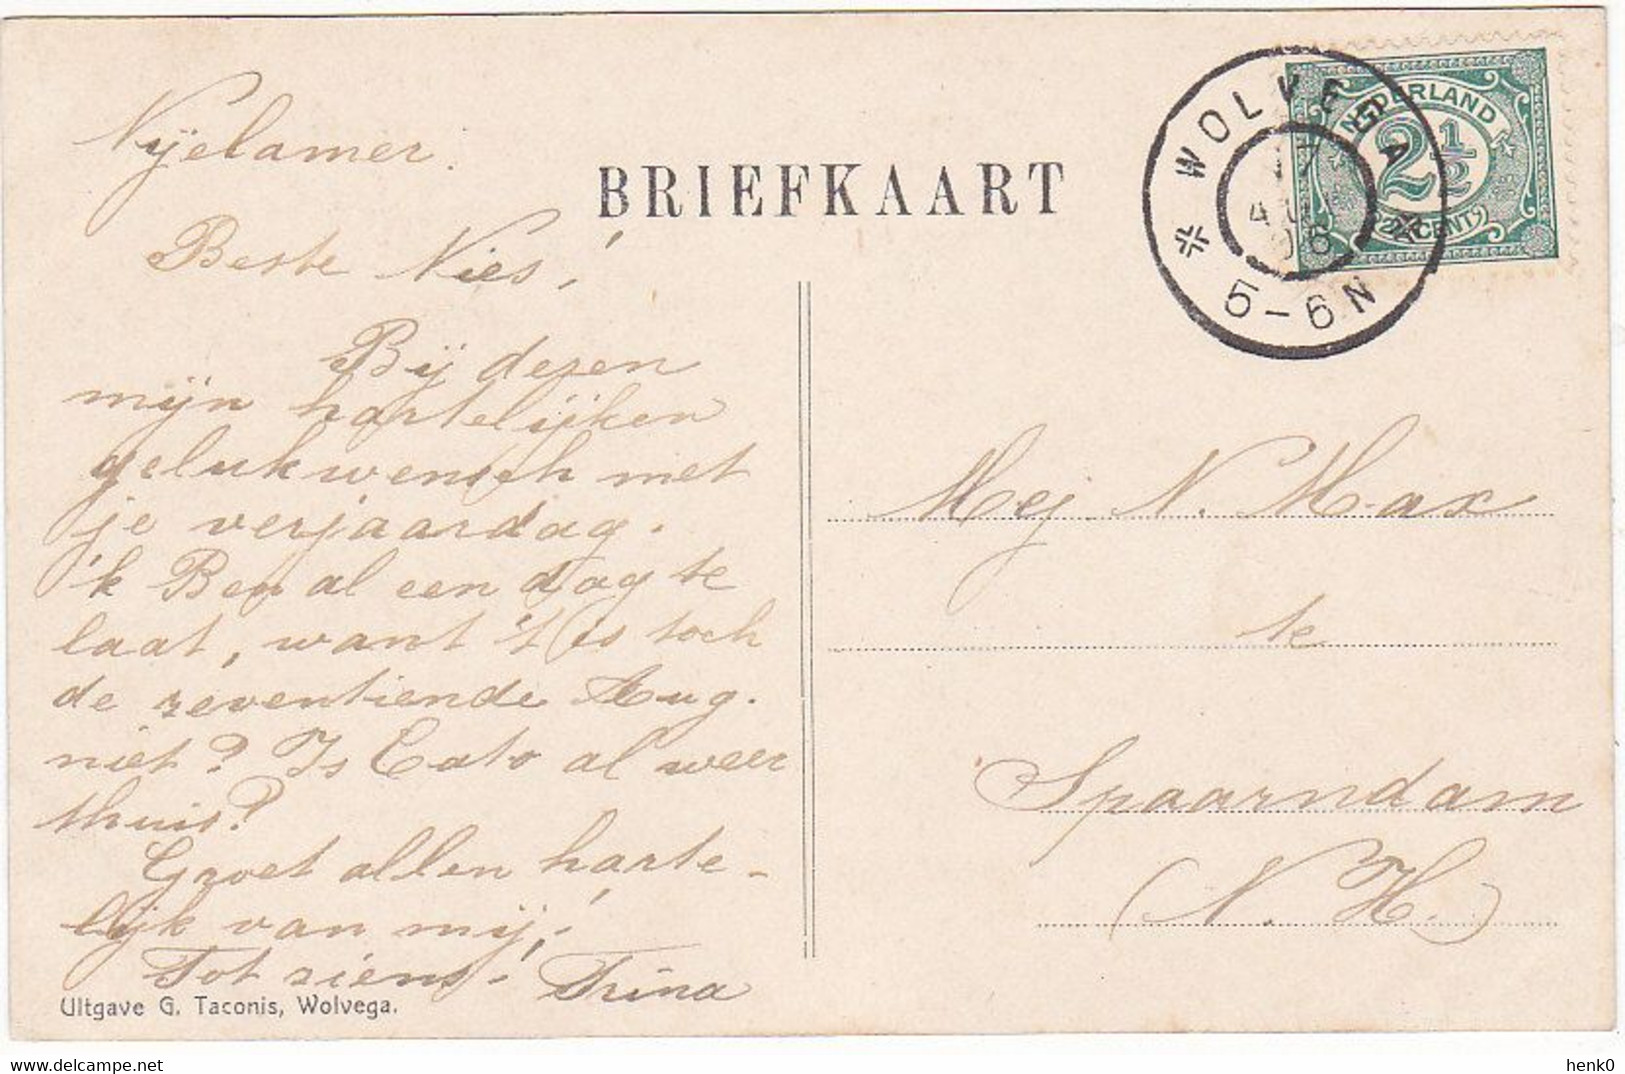 Nyelamer.
BRIEFKAART
Beste Nies!
Bij dezen
mijn hartelijken
gelukwensch met
je verjaardag.
'k Ben al een dag te
laat, want 't is toch
de zeventiende Aug.
niet? Is Cato al weer
thuis?
Groet allen harte-
lijk van mij!
Tot ziens! Trina
Uitgave G. Taconis, Wolvega.
WOLVEGA
17
5-6N
NEDERLAND
2 1/2
CENT
Mej N. Max
te
Spaarndam
(N. H.)
henk0